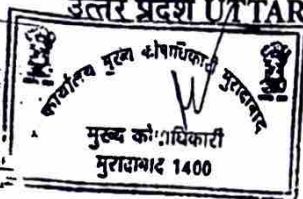 उत्तर प्रदेश UTTAR
कार्यालय मुख्य कोषाधिकारी मुरादाबाद
मुख्य कोषाधिकारी
मुरादाबाद 1400